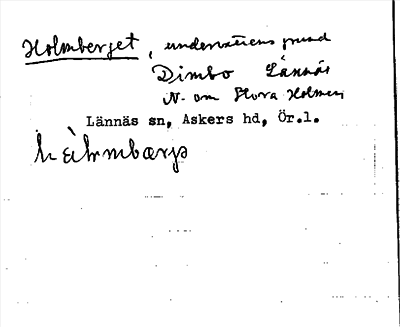 Holmberget, undervattens grund
Dimbo Lännäs
N. om Stora Holmen
Lännäs sn, Askers hd, Ör.l.